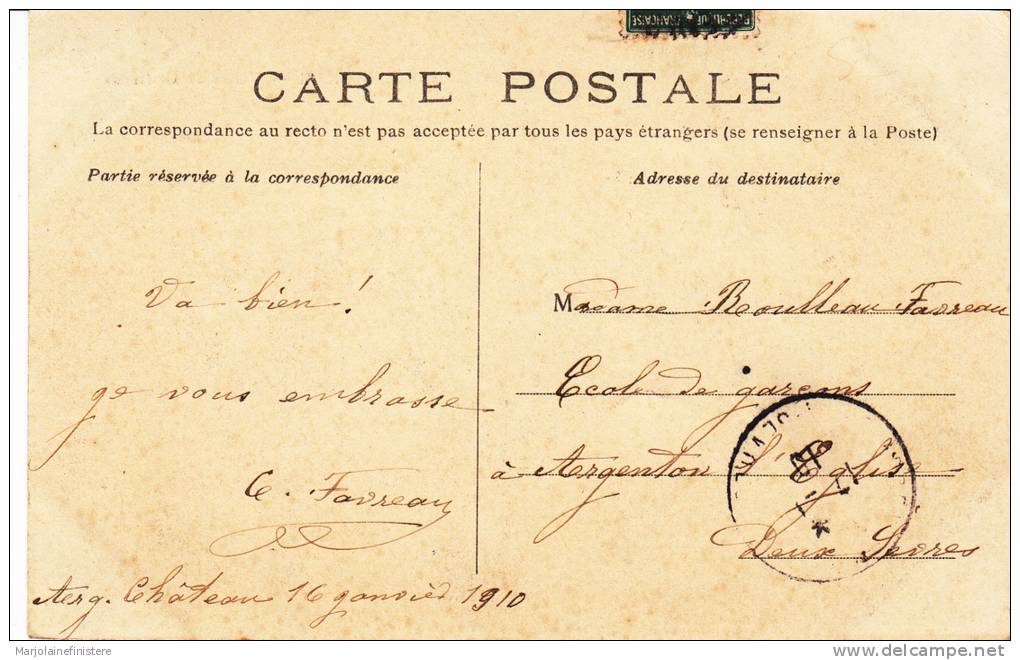 REPUBLIQUE FRANÇAISE
CARTE POSTALE
La correspondance au recto n'est pas acceptée par tous les pays étrangers (se renseigner à la Poste)
Partie réservée à la correspondance
Va bien !
ge vous embrasse
C. Favreau
Arg. Château 16 janvier 1910
Adresse du destinataire
Madame Roulleau Favreau
Ecole de garçons
à Argenton l'Eglise
Deux Sèvres
Marjolainefinistere
delcampe.net